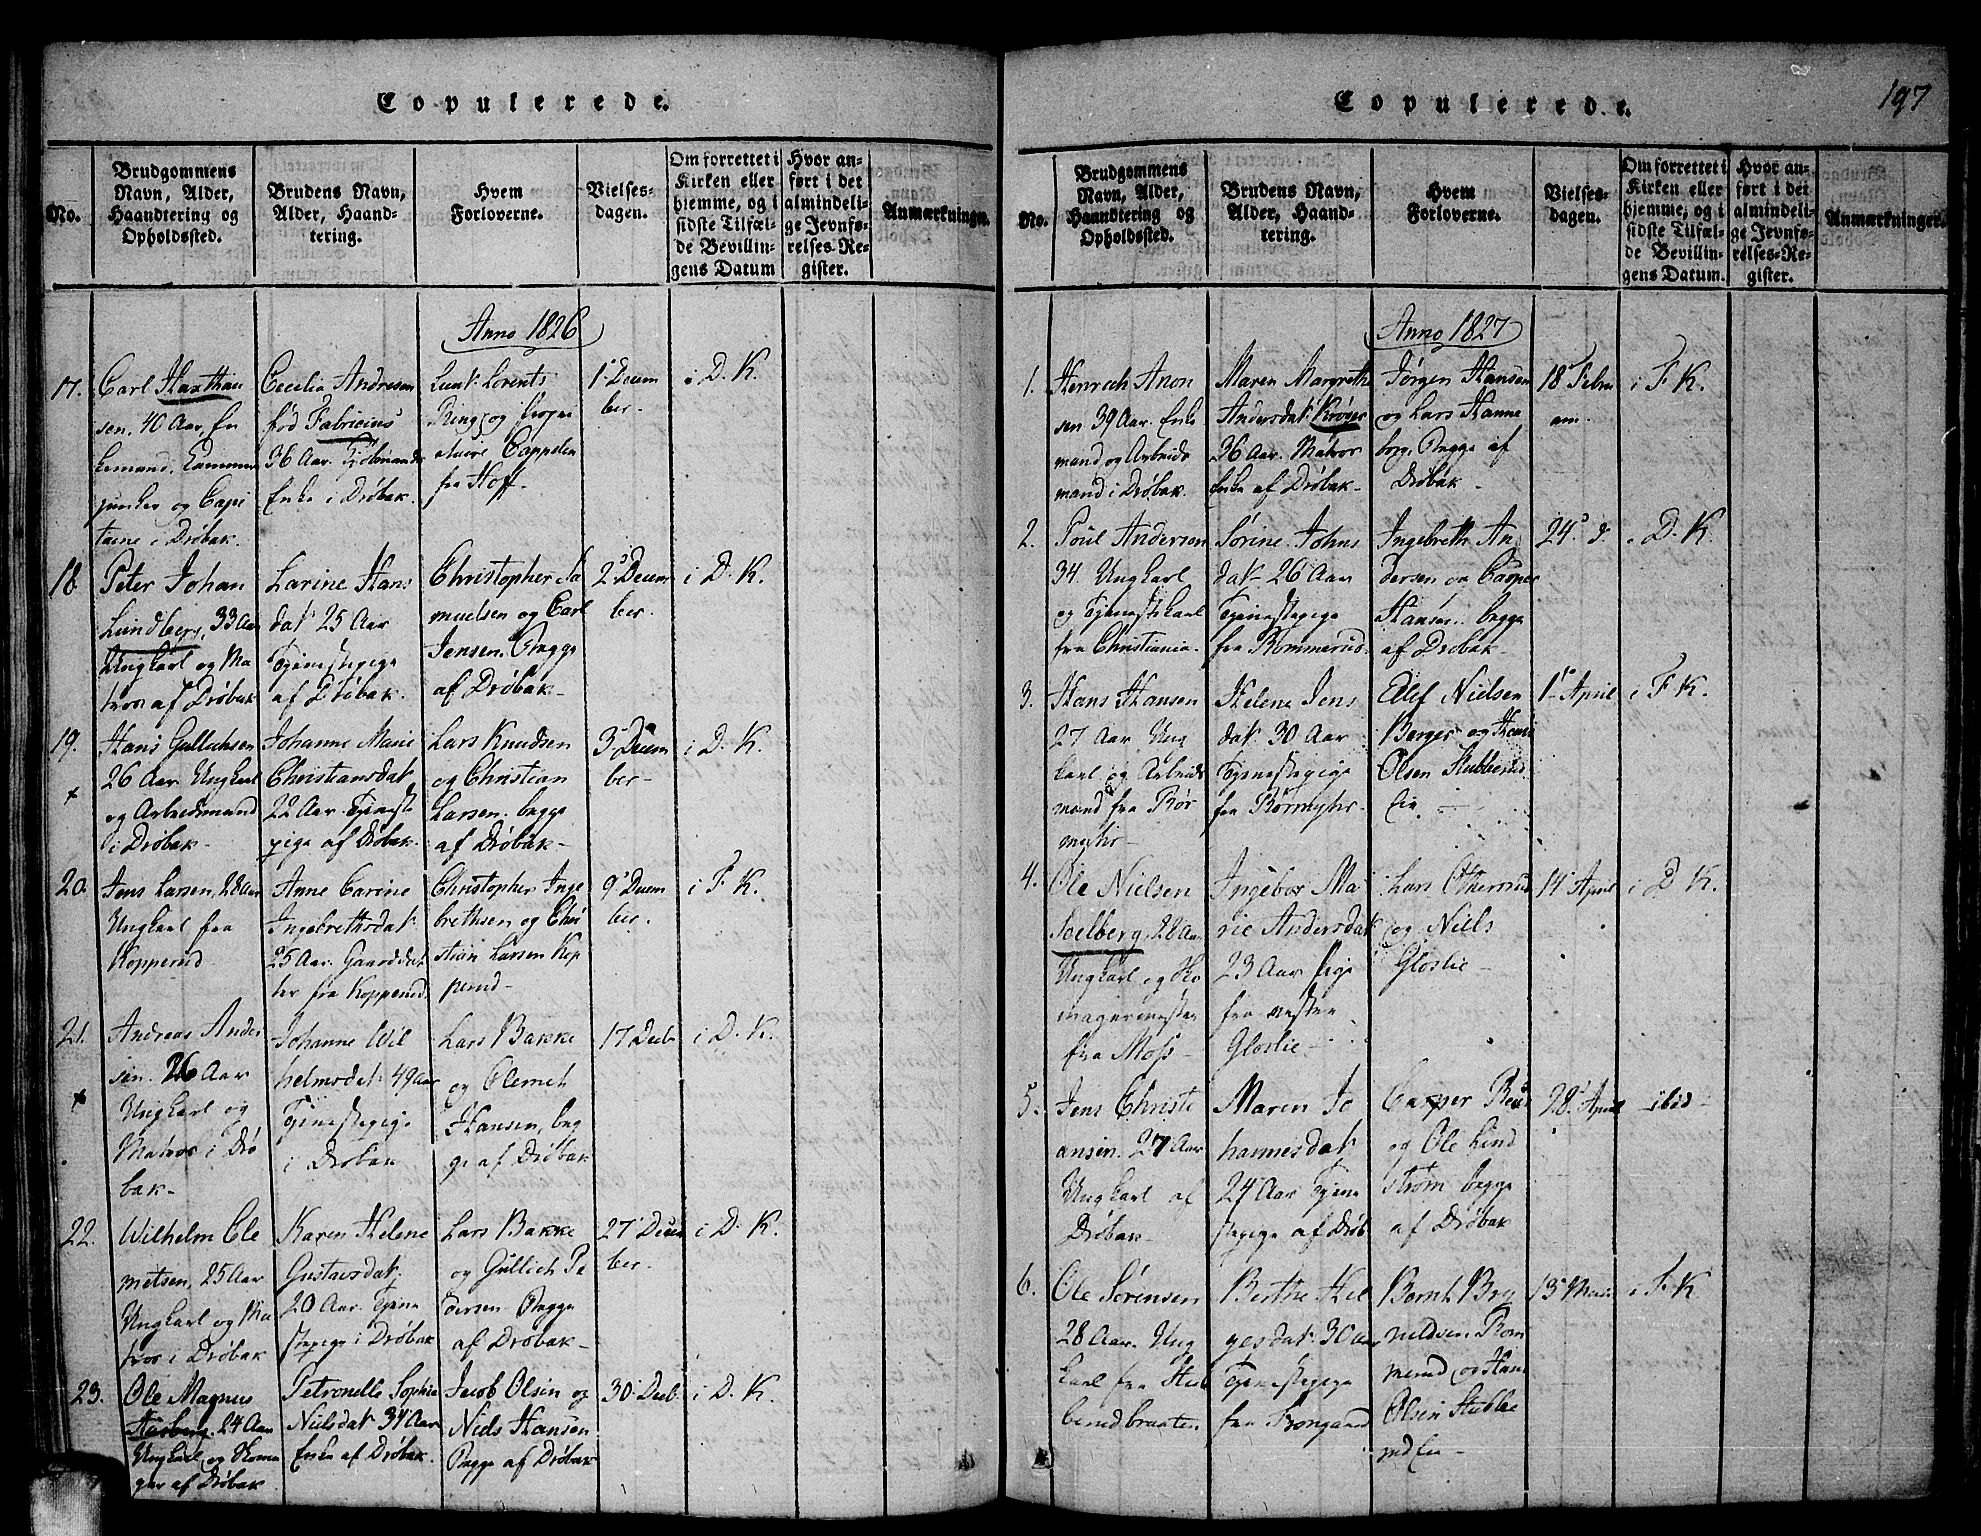 Copulerede.
No.
Brudgommens
Navn, Alder,
Haandtering og
Opholdssted.
Brudens Navn,
Alder, Haand-
tering.
Hvem
Forloverne.
Vielses-
dagen.
Om forrettet i
Kirken eller
hjemme, og i
sidste Tilfæl-
de Bevillin-
gens Datum
Hvor an-
ført i det
almindeli-
ge Jevnfø-
relses-Re-
gister.
Anmærkninger.
Anno 1826
17.
Carl Haxthau
sen, 40 Aar, En
kemand, Kammer
junker og Capi
taine i Drøbak.
Cecilia Andresen
fød Fabricius
36 Aar
Enke i Drøbak.
Lorents
Ring og
Cappelen
fra Hoff.
1 Decem
ber.
i D. K.
18
Peter Johan
Lundberg, 33 Aar
Ungkarl og Ma
tros af Drøbak
Larine Hans
dat: 25 Aar
Tjenestepige
af Drøbak.
Christopher Sa
muelsen og Carl
Jensen. Begge
af Drøbak-
2 Decem
ber.
i D. K.
19.
Hans Gullichsen
26 Aar Ungkarl
og Arbeidsmand
i Drøbak-
Johanne Marie
Christiansdat
22 Aar Tjeneste
pige af Drøbak.
Lars Knudsen
og Christian
Larsen. begge
af Drøbak-
3 Decem
ber-
i D. K.
20.
Jens Larsen, 28 Aar
Ungkarl fra
Kopperud
Anne Carine
Ingebrethsdat:
25 Aar. Gaarddat
ter fra Kopperud.
Christopher Inge
brethsen og Chri
stian Larsen Kop
perud-
9 Decem
ber.
i F. K.
21.
Andreas Ander
sen. 26 Aar
Ungkarl og
Matros i Drø
bak-
Johanne Wil
helmsdat: 49 Aar
Tjenestepige
i Drøbak
Lars Bakke
og Clemet
Hansen, beg
ge af Drøbak
17 Decb
i D. K.
22.
Wilhelm Cle
metsen, 25 Aar
Ungkarl og Ma
tros i Drøbak
Karen Helene
Gustavsdat:
20 Aar. Tjene
stepige i Drøbak
Lars Bakke
og Gullich Pe
dersen Begge
af Drøbak-
27 Decem
ber-
i D. K.
23.
Ole Magnus
24 Aar
Ungkarl og Skoma
ger af Drøbak
Petronelle Sophie
Nielsdat: 34 Aar
Enke af Drøbak.
Jacob Olsen og
Niels Hansen
Begge af Drøbak
30 Decb
i D. K.
Copulerede.
197
No.
Brudgommens
Navn, Alder,
Haandtering og
Opholdssted.
Brudens Navn,
Alder, Haand-
tering.
Hvem
Forloverne.
Vielses-
dagen.
Om forrettet i
Kirken eller
hjemme, og i
sidste Tilfæl-
de Bevillin-
gens Datum.
Hvor an-
ført i det
almindeli-
ge Jevnfø-
relses-Re-
gister.
Anmærkninger.
Anno 1827
1.
Henrich Anon
sen 39 Aar. Enke
mand og Arbeids
mand i Drøbak.
Maren Margrethe
Andersdat: Krøyer
36 Aar. Matros
Enke af Drøbak-
Jørgen Hansen
og Lars Hanne
borg. Begge af
Drøbak
18 Febru
i F. K.
2.
Poul Andersen
34. Ungkarl
og Tjenestekarl
fra Christiania.
Sørine Johns
dat- 26 Aar
Tjenestepige
fra Rommerud.
Ingebreth An
dersen og Casper
Hansen. begge
af Drøbak-
24 d.
i D. K.
3.
Hans Hansen
27 Aar Ung
karl og Arbeids
mand fra Bør
myhr-
Helene Jens
dat: 30 Aar
Tjenestepige
fra Børmyhr-
Nielsen
Berger og
Olsen Stubberud
1 April
i F. K.
4.
Ole Nielsen
Soelberg, 28 Aar
Ungkarl og Sko
magermester
fra Moss-
Ingebor Ma
rie Andersdat
23 Aar Pige
fra Vestre
Gloslie-
Lars
og Niels
Gloslie-
14 April
i D K.
5.
Jens Christi
ansen. 27 Aar
Ungkarl af
Drøbak-
Maren Jo
hannesdat
24 Aar Tjene
stepige af Drøb
Casper
og Ole Lind
strøm begge
af Drøbak
28 April
ibid-
6.
Ole Sørensen
28 Aar. Ung
karl fra Stub
berudbraaten.
Berthe Hel
gesdat: 30 Aar
Tjenestepige
fra Krongaard
Bernt Bry
nildsen. Rom
merud, og Han
Olsen Stubbe
rud
13 Mai
i F. K